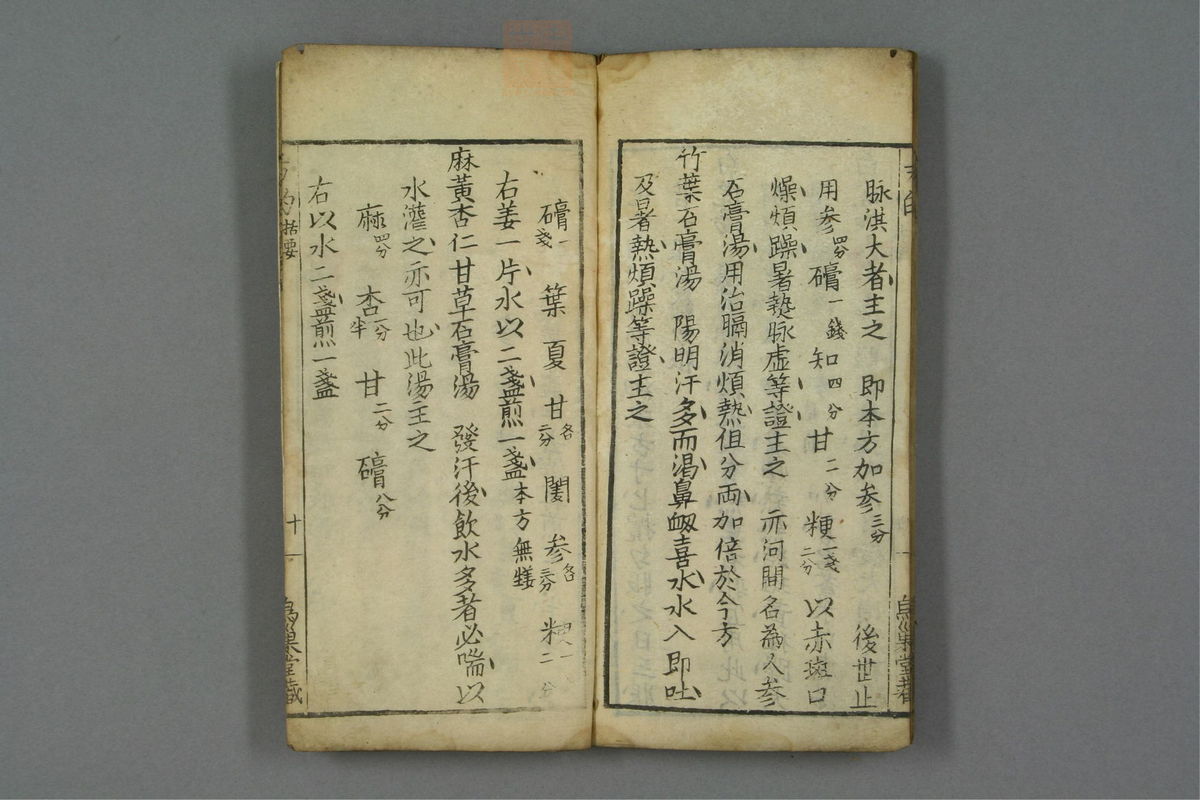 脉洪大者主之 即本方加参三分 後世止
用参四分 礵一錢 知四分 甘二分 粳一戔二分 以赤斑口
燥煩躁暑熱脉虚等證主之 亦河間名為人参
石膏湯用治膈消煩熱但分両加倍於今方
竹葉石膏湯 陽明汗多而渴鼻衂喜水水入即吐
及暑熱煩躁等證主之
礵一戔 葉 夏 甘各二分 門 参各三分 粳一 二分
右姜一片水以二盞煎一盞本方無姜
麻黄杏仁甘草石膏湯 發汗後飲水多者必喘以
水灌之亦可也此湯主之
麻四分 杏一分半 甘二分 礵八分
右以水二盞煎一盞
方的 括要
十一
烏巢堂藏